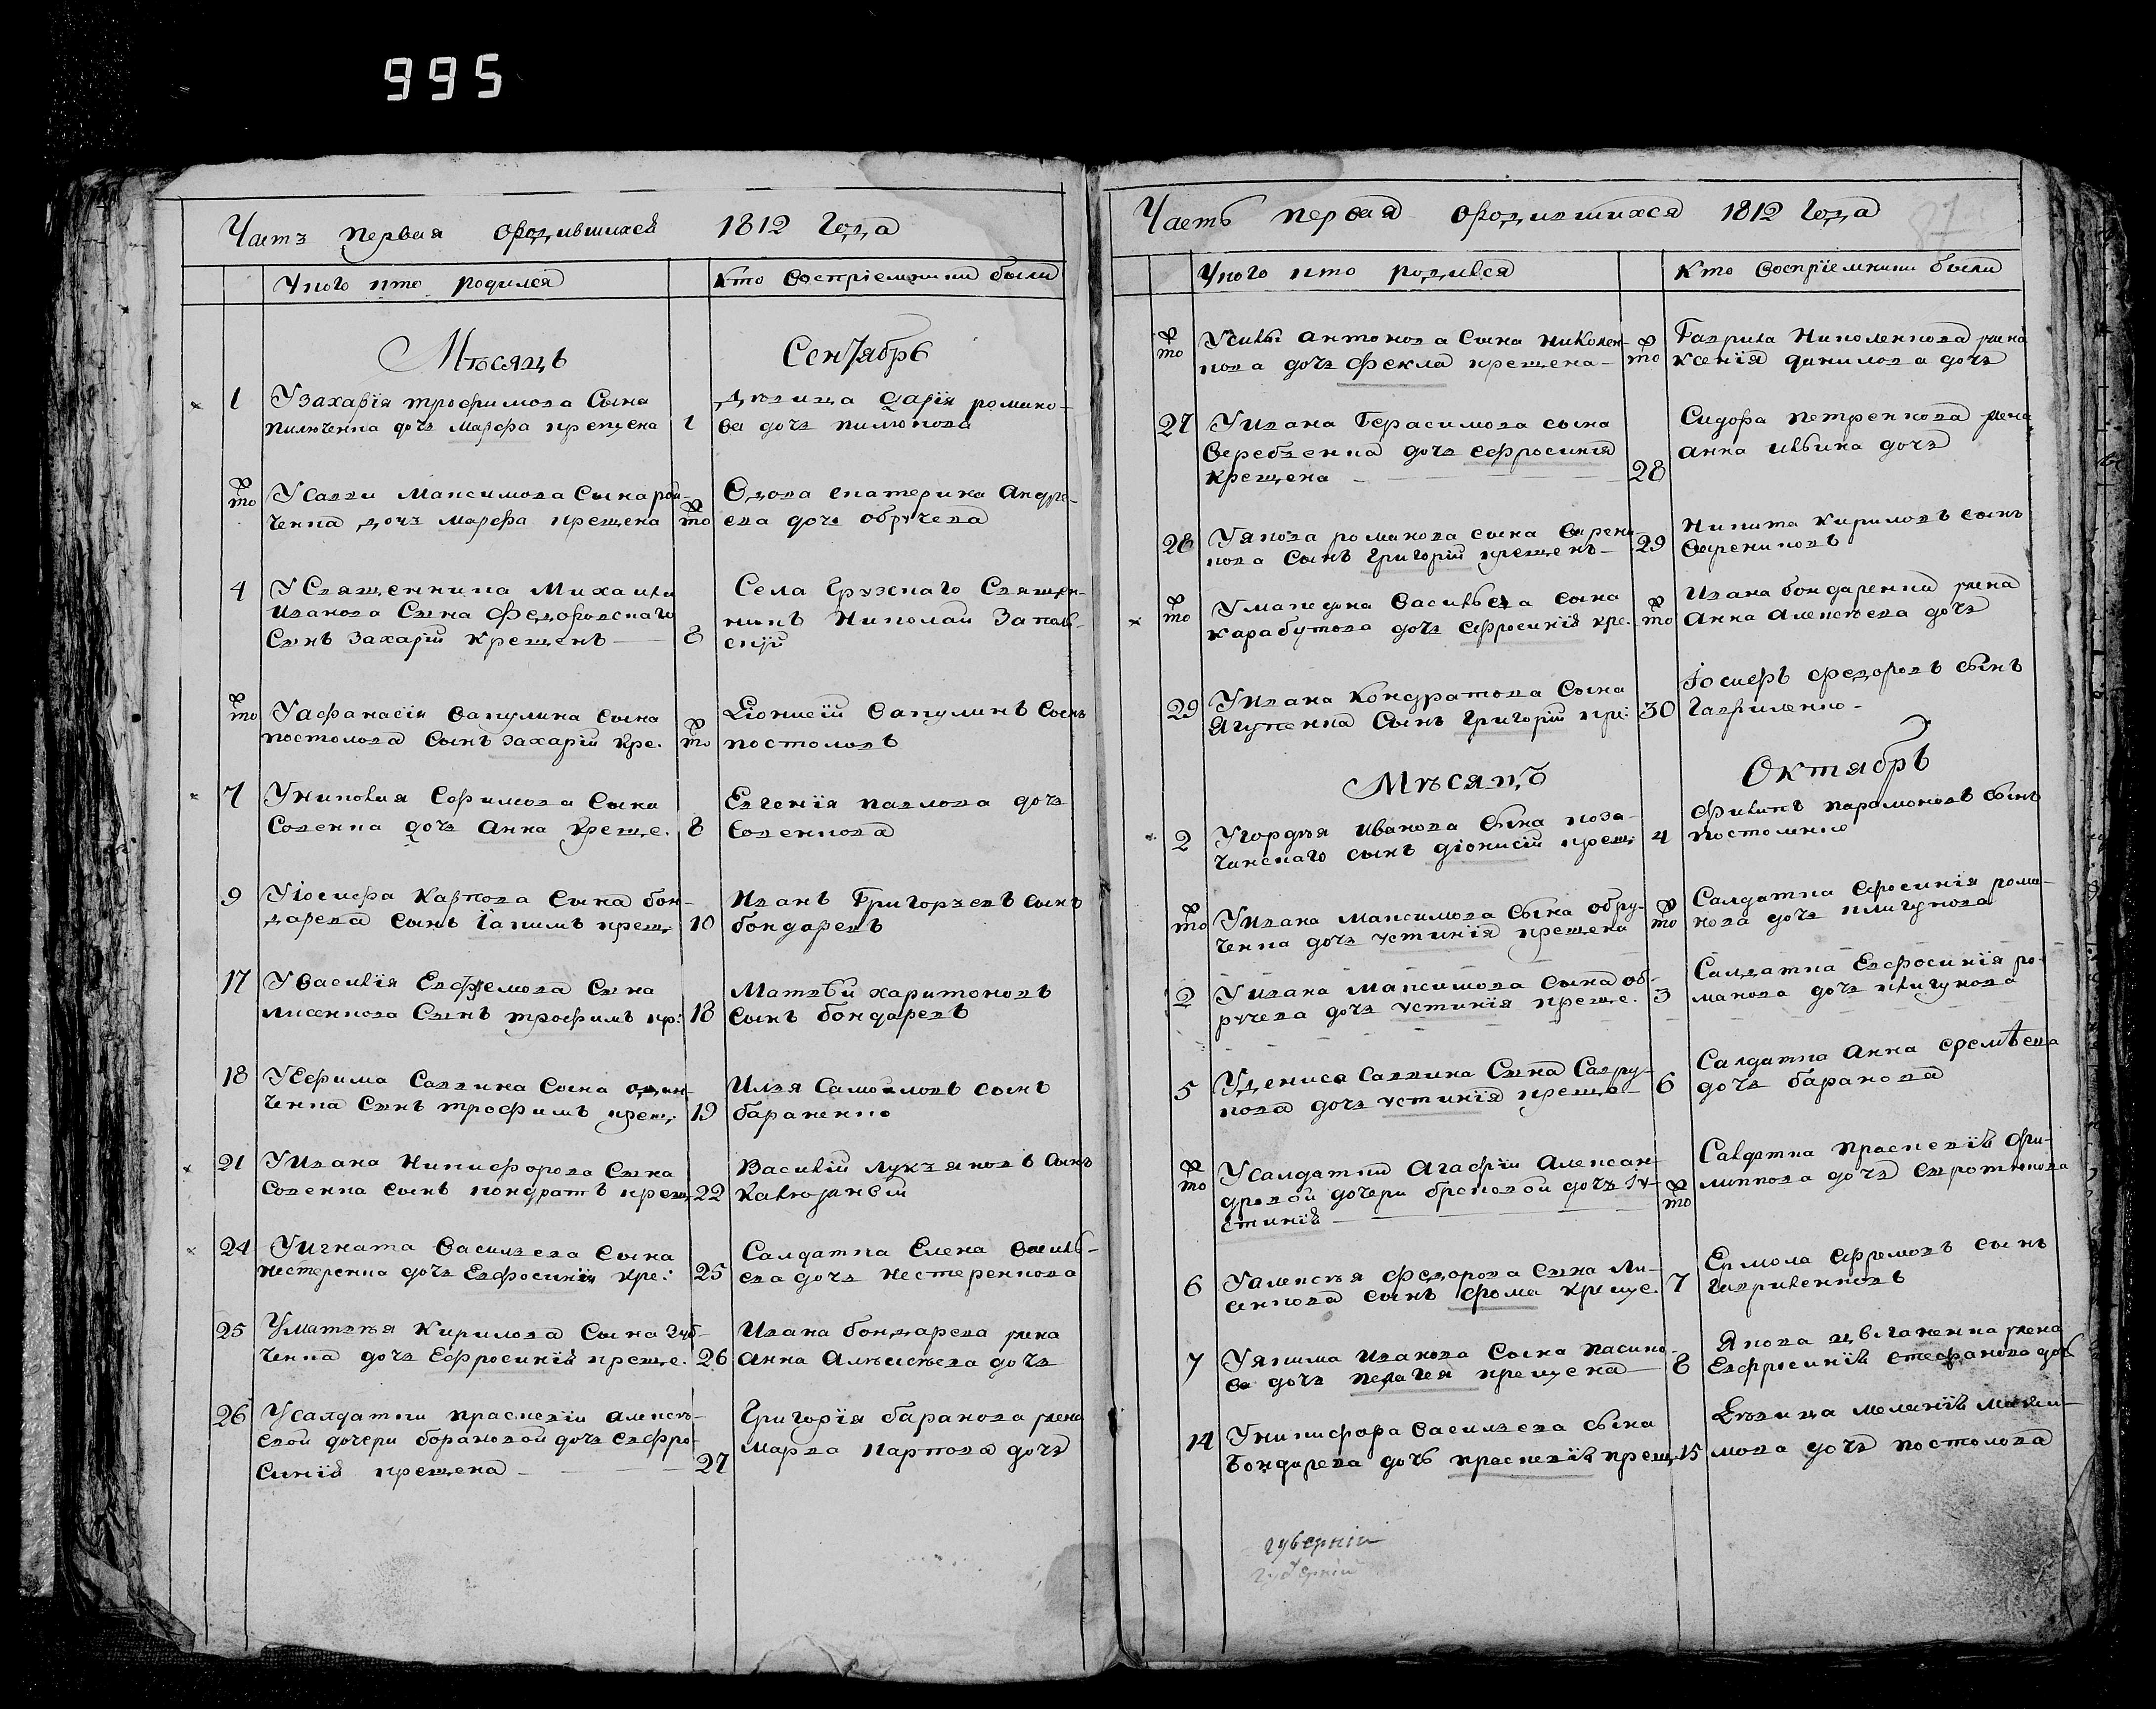 995
Часть первая ѡродившихся 1812 Года
У кого кто родился
Кто восприемники были
Мѣсяцъ Сентябрь
1 У захарія трофимова Сына
пилюченка дочь марфа крещена
1 Дѣвица дарія романо-
ва дочь пилюкова
то У саввы Максимова Сына
ченка дочь марфа крещена
то Вдова екатерина андре-
ева дочь обручева
4 У Священника Михаила
иванова Сына Федоровскаго
Сынъ захарій крещенъ
8 Села Грузкаго Священ-
никъ Николай
то У афанасія вакулина сына
постолова Сынъ захарій кре.
то Діонисій вакулинъ Сынъ
постоловъ
7 У Сефимова Сына
Совенка дочь анна креще.
8 Евгенія павлова дочь
Совенкова
9 У іосифа Карпова Сына бон-
дарева Сынъ іакимъ крещ.
10 Иванъ Григорьевъ сынъ
бондаревъ
17 У василія Евфремова Сына
лисенкова Сынъ трофимъ кр:
18 Матвѣй харитоновъ
Сынъ бондаревъ
18 У Ефима Саввина Сына
ченка Сынъ трофимъ крещ.
19 Илья Самойловъ сынъ
бараненко
21 У Ивана Никифорова Сына
Совенка сынъ кондратъ крещ.
22 Василій лукьяновъ Сынъ
24 У игната васильева Сына
нестеренка дочь Евфросинія кре:
25 Салдатка Елена василь-
ева дочь нестеренкова
25 У матвѣя Кирилова Сына
ченка дочь Ефросинія креще.
26 Ивана бондарева жена
анна Алексѣева дочь
26 У салдатки праскевіи алексѣ-
евой дочери барановой дочь евфро-
синія крещена
27 Григорія баранова жена
марва карпова дочь
Часть первая ѡродившихся 1812 Года
У кого кто родився
Кто восприемники были
то У силы антонова Сына николен-
кова дочь Фекла крещена
то Гаврила Николенкова жена
ксенія данилова дочь
27 У ивана Герасимова сына
веребьенка дочь ефросинія
крещена
28 Сидора петренкова жена
анна ильина дочь
28 У якова романова сына
кова Сынъ григорій крещенъ
29 Никита кириловъ сынъ
то У македона васильева сына
карабутова дочь ефросинія кре.
то Ивана бондаренка жена
анна алексѣева дочь
29 У ивана Кондратова Сына
ягупенка Сынъ григорій кре:
30 іосифъ федоровъ сынъ
Гавриленко
Мѣсяцъ Октябрь
2 У гордѣя иванова Сына коза-
чинскаго сынъ діонисій крещ:
4 Филипъ парамоновъ сынъ
постоленко
то У ивана максимова сына обру-
ченка дочь устинія крещена
то Салдатка ефросинія рома-
нова дочь плигунова
2 У ивана максимова сына об-
ручева дочь устинія креще.
3 Салдатка Евфросинія ро-
манова дочь плигунова
5 У дениса саввина Сына Савру-
кова дочь устинія креще
6 Салдатка Анна еремѣева
дочь баранова
то У салдатки Агафіи алексан-
дровой дочери дочь іу-
стинія
то Салдатка праскевія фи-
липпова дочь
6 У алексѣя федорова Сына ли-
сенкова сынъ фома креще.
7 Ермола ефремовъ сынъ
гавриленковъ
7 У якима иванова Сына касяно-
ва дочь пелагея крещена
8 Якова жена
Евфросинія стефанова дочь
14 У никифора васильева сына
Бондарева дочь праскевія крещ.
15 Дѣвица меланія
мова дочь постолова
губерніи
губерніи